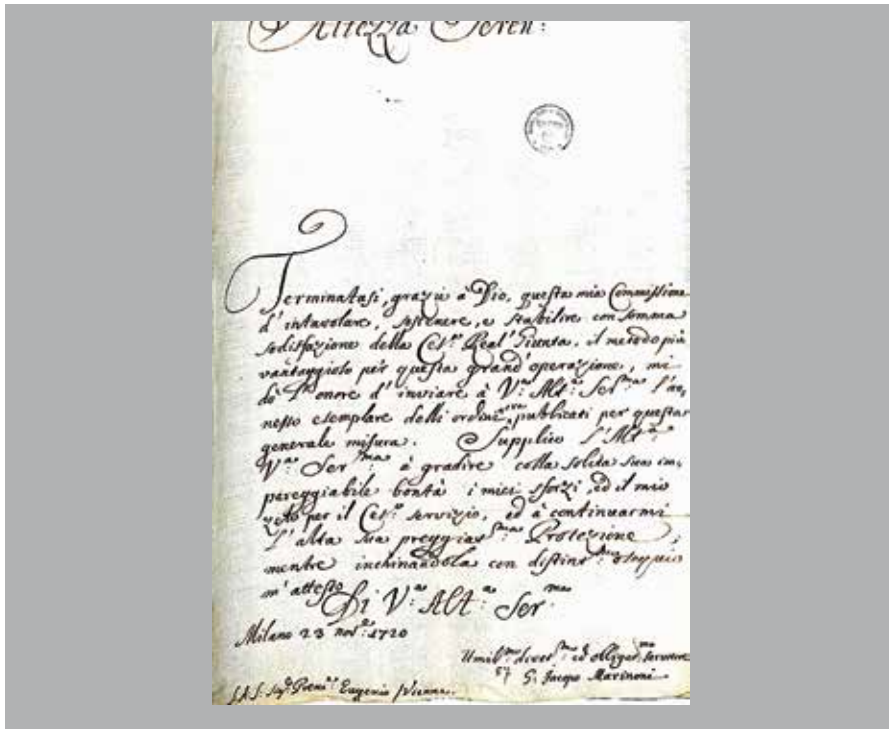 Altezza Seren:
Terminatasi, grazie à Dio, questa mia Commissione
d'intavolare, sostenere, e stabilire con somma
sodisfazione della Ces.ª Real' Giunta, il metodo più
vantaggioso per questa grand' operazione, mi
dò l'onore d'inviare à V.ª Alt.ª Ser.ma l'an,
nesso esemplare delli ordini pubblicati per questa
generale misura. Supplico l'Alt.ª
V.ª Ser.ma à gradire colla solita sua im,
pareggiabile bontà i miei sforzi, ed il mio
zelo per il Ces.º servizio, ed à continuarmi
l'alta sua preggias.ma Protezione,
mentre inchinandola con distint.mo ossequio
m'attesto
Di V.ª Alt.ª Ser.ma
Milano 23 nov.e 1720
Umil.mo devot.mo ed obligat.mo servitore
G. Jacopo Marinoni
S.A.S. Sig.r Eugenio Vienna.